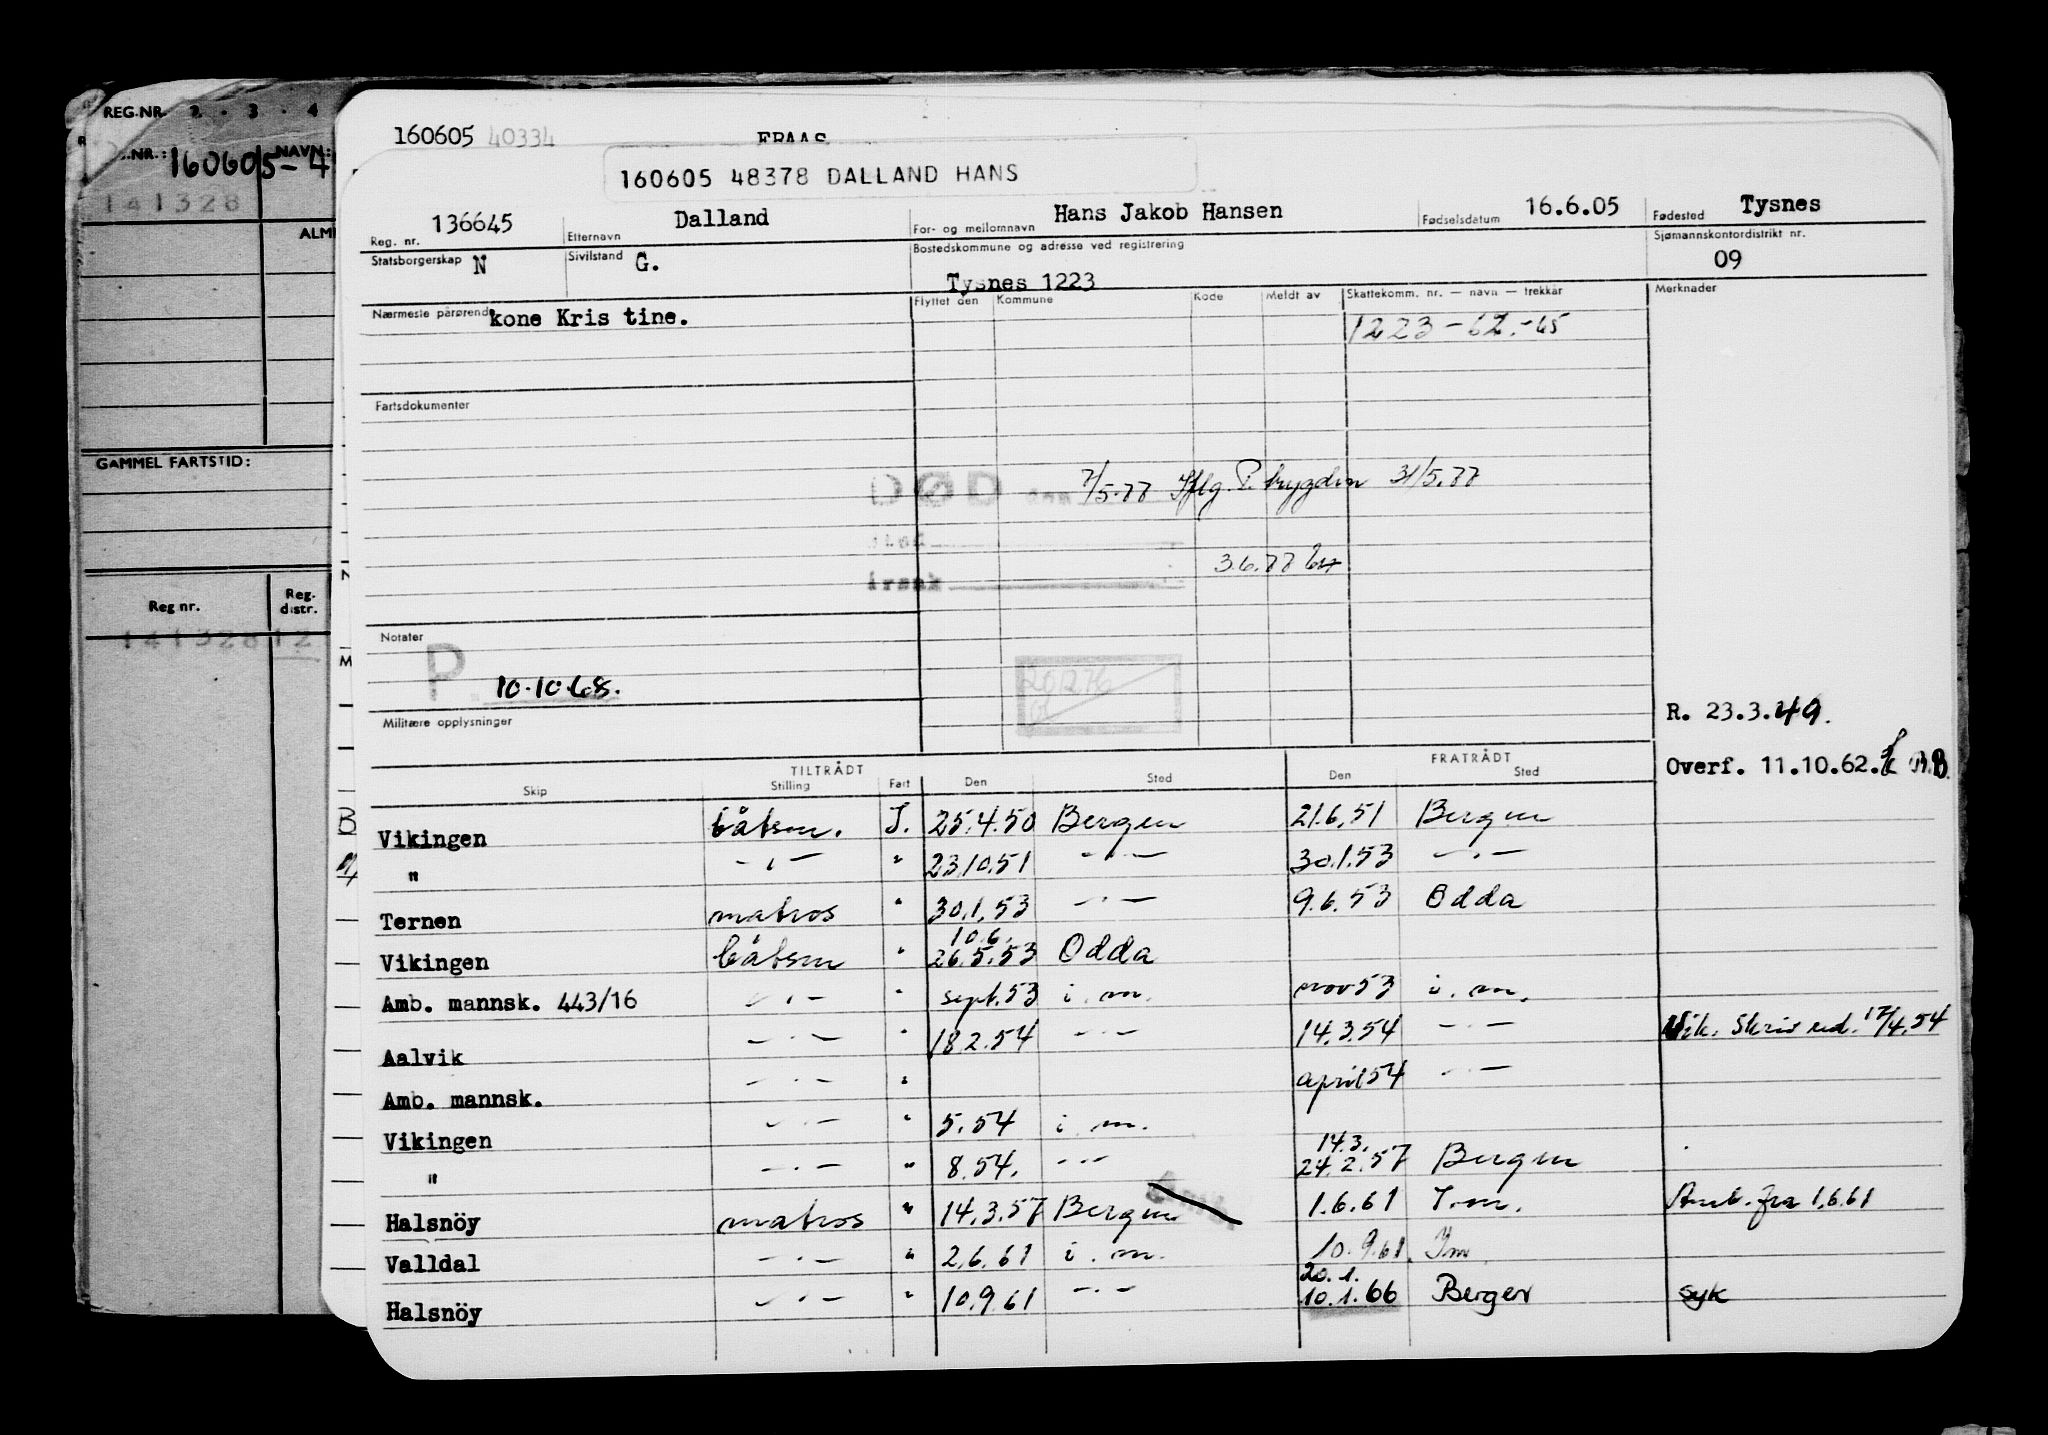 REG.NR. 2 · 3 · 4
.NR.: 160605-4 NAVN:
141328
ALM
GAMMEL FARTSTID:
Reg nr. Reg. distr.
141328 12
160605 40334
160605 48378 DALLAND HANS
Reg. nr. 136645 Etternavn Dalland For- og mellomnavn Hans Jakob Hansen Fødselsdatum 16.6.05 Fødested Tysnes
Statsborgerskap N Sivilstand G. Bostedskommune og adresse ved registrering Tysnes 1223 Sjømannskontordistrikt nr. 09
Nærmeste pårørende kone Kris tine. Flyttet den Kommune Kode Meldt av Skattekomm. nr. — navn — trekkår Merknader
1223-62.-65
Fartsdokumenter
DØD den 7/5-77 Iflg. T.trygden 31/5.77
sted
årsak 3.6.77
Notater
P 10.10.68.
201276
Militære opplysninger
R. 23.3.49.
Overf. 11.10.62.
TILTRÅDT FRATRÅDT
Skip Stilling Fart Den Sted Den Sted
B Vikingen båtsm. I. 25.4.50 Bergen 21.6.51 Bergen
" - " - " 23.10.51 - " - 30.1.53 - " -
Ternen matros " 30.1.53 - " - 9.6.53 Odda
10.6.
Vikingen båtsm " 26.5.53 Odda
Amb. mannsk. 443/16 - " - " sept.53 i.m. nov 53 i.m.
Aalvik - " - " 18.2.54 - " - 14.3.54 - " - Vik. Skriv red. 17/4.54
Amb. mannsk. - " - " april 54 - " -
Vikingen - " - " 5.54 i.m.
14.3.
" - " - " 8.54. - " - 24.2.57 Bergen
Halsnöy matros " 14.3.57 Bergen 1.6.61 I.m. Amb. fra 1.6.61
Valldal - " - " 2.6.61 i.m. 10.9.61 Im
20.1.
Halsnöy - " - " 10.9.61 - " - 10.1.66 Bergen syk